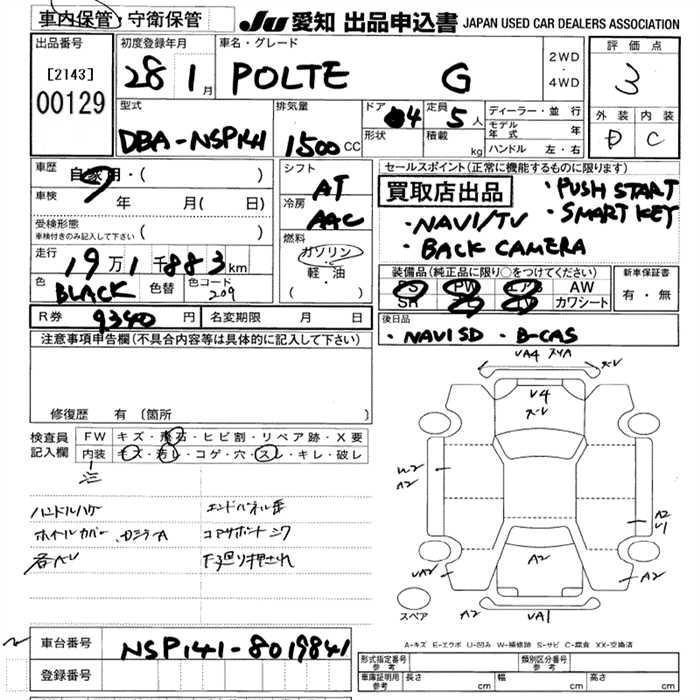 車内保管・守衛保管 JU 愛知 出品申込書 JAPAN USED CAR DEALERS ASSOCIATION
出品番号
[2143]
00129
初度登録年月
28 1月
車名・グレード
POLTE G
2WD
・
4WD
評価点
3
外装 内装
D C
型式
DBA-NSP141
排気量
1500 CC
ドア 4
形状
定員 5人
積載 kg
ディーラー・並行
モデル年式 年
ハンドル 左・右
車歴
自家用・( )
車検
年 月( 日)
受検形態
車検付きのみ記入して下さい ( )
走行
19万1千883km
色
BLACK
色替
色コード
209
シフト
AT
冷房
AAC
燃料
ガソリン
・
軽・油
( )
セールスポイント(正常に機能するものに限ります)
買取店出品
・PUSH START
・SMART KEY
・NAVI/TV
・BACK CAMERA
装備品(純正品に限り○をつけてください)
PS PW エアB AW
SR TV カワシート
新車保証書
有・無
R券 9340円
名変期限 月 日
後日品
・NAVI SD ・B-CAS
注意事項申告欄(不具合内容等は具体的に記入して下さい)
修復歴 有 (箇所
検査員記入欄
FW キズ・飛石・ヒビ割・リペア跡・X要
内装 キズ・汚レ・コゲ・穴・スレ・キレ・破レ
ハンドルハゲ
エンドパネル歪
ホイールカバー
コアサポート
下廻り押され
VA4
V4
W2
A2
A2
V1
A2
VA2
A2
A2
VA1
スペア
A-キズ E-エクボ U-凹み W-補修跡 S-サビ C-腐食 XX-交換済
車台番号 NSP141-8019841
登録番号
形式指定番号
参考
類別区分番号
参考
車庫証明用
参考
長さ cm 幅 cm 高さ cm